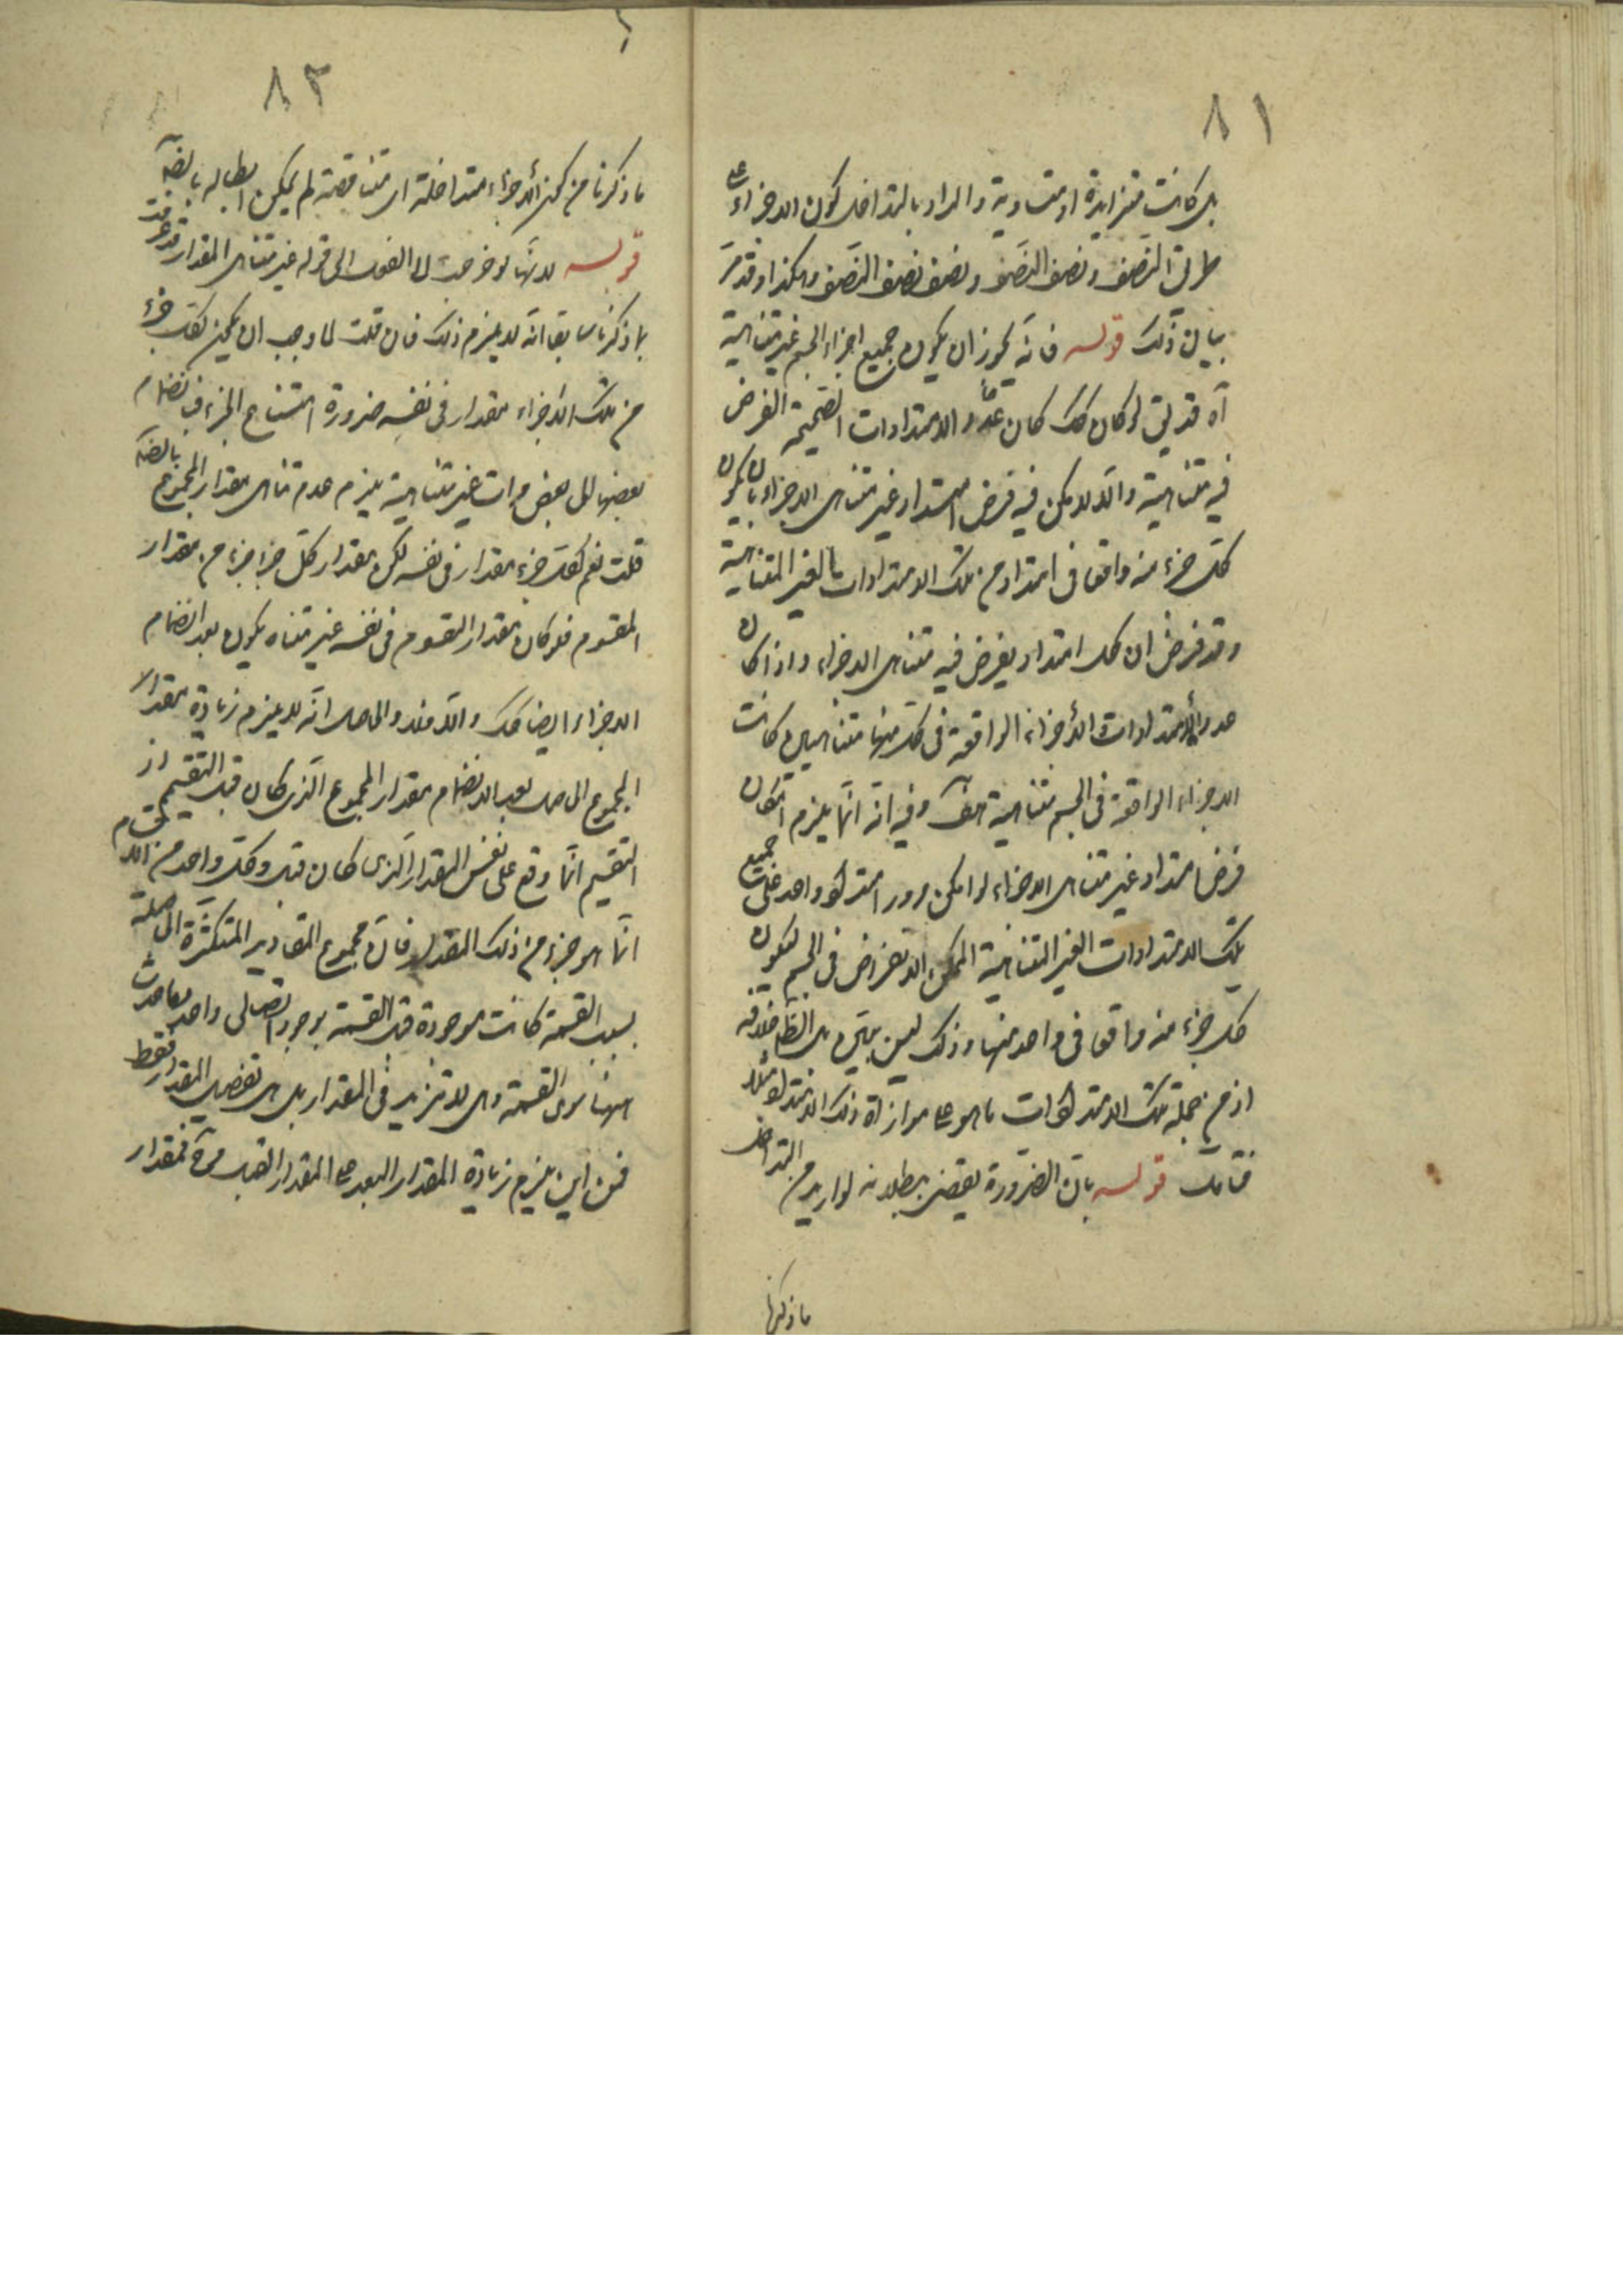 ٨١
بل كانت متزايدة او متساوية والمراد بالتداخل كون الاجزاء على
طريق النصف ونصف النصف ونصف نصف النصف وهكذا وقد مر
بيان ذلك قوله فانه يجوز ان يكون جميع اجزاء الجسم غير متناهية
آه قد يق لو كان كك كان عدد الامتدادات الفرض
فيه متناهية والا لامكن فيه فرض امتداد غير متناهى الاجزاء بان يكون
كل جزء منه واقعا فى امتداد من تلك الامتدادات الغير المتناهية
وقد فرض ان كل امتداد يفرض فيه متناهى الاجزاء واذا كان
عدد الامتدادات والاجزاء الواقعة فى كل منها متناهيين كانت
الاجزاء الواقعة فى الجسم متناهية هف وفيه انه انما يلزم امكان
فرض امتداد غير متناهى الاجزاء لو امكن مرور امتداد واحد على جميع
تلك الامتدادات الغير المتناهية الممكن الانفراض فى الجسم ليكون
كل جزء منه واقعا فى واحد منها وذلك ليس ببين بل الظاهر خلافه
اذ من جملة تلك الامتدادات ما هو على موازاة ذلك الامتداد مثلا
فتأمل قوله بان الضرورة يقضى ببطلانه لو اريد من التداخل
ما ذكرنا
٨٢
ما ذكرنا من كون الاجزاء متداخلة اى متناقصة لم يمكن ابطاله بالضرورة
قوله لانها لو خرجت الى الفعل الى قوله غير متناهى المقدار قد عرفت
بما ذكرنا سابقا انه لا يلزم ذلك فان قلت لما وجب ان يكون لكل جزء
من تلك الاجزاء مقدار فى نفسه ضرورة امتناع الجزء فبانضمام
بعضها الى بعض مرات غير متناهية يلزم عدم تناهى مقدار المجموع بالضرورة
قلت نعم لكل جزء مقدار فى نفسه لكن مقدار كل جزء جزء من مقدار
المقسوم فلو كان مقدار المقسوم فى نفسه غير متناه يكون بعد انضمام
الاجزاء ايضا كك والا فلا والحاصل انه لا يلزم زيادة مقدار
المجموع الحاصل بعد الانضمام بمقدار المجموع الذى كان قبل التقسيم اذ
التقسيم انما وقع على نفس المقدار الذى كان قبل وكل واحد من الاقسام
انما هو جزء من ذلك المقدار فان مجموع المقادير المتكثرة الحاصلة
بسبب القسمة كانت موجودة قبل القسمة بوجود اتصالى واحد فما حدث
ههنا سوى القسمة وهى لا تزيد فى المقدار بل هى تفصيل المقدار فقط
فمن اين يلزم زيادة المقدار البعد على المقدار القبل فمقدار